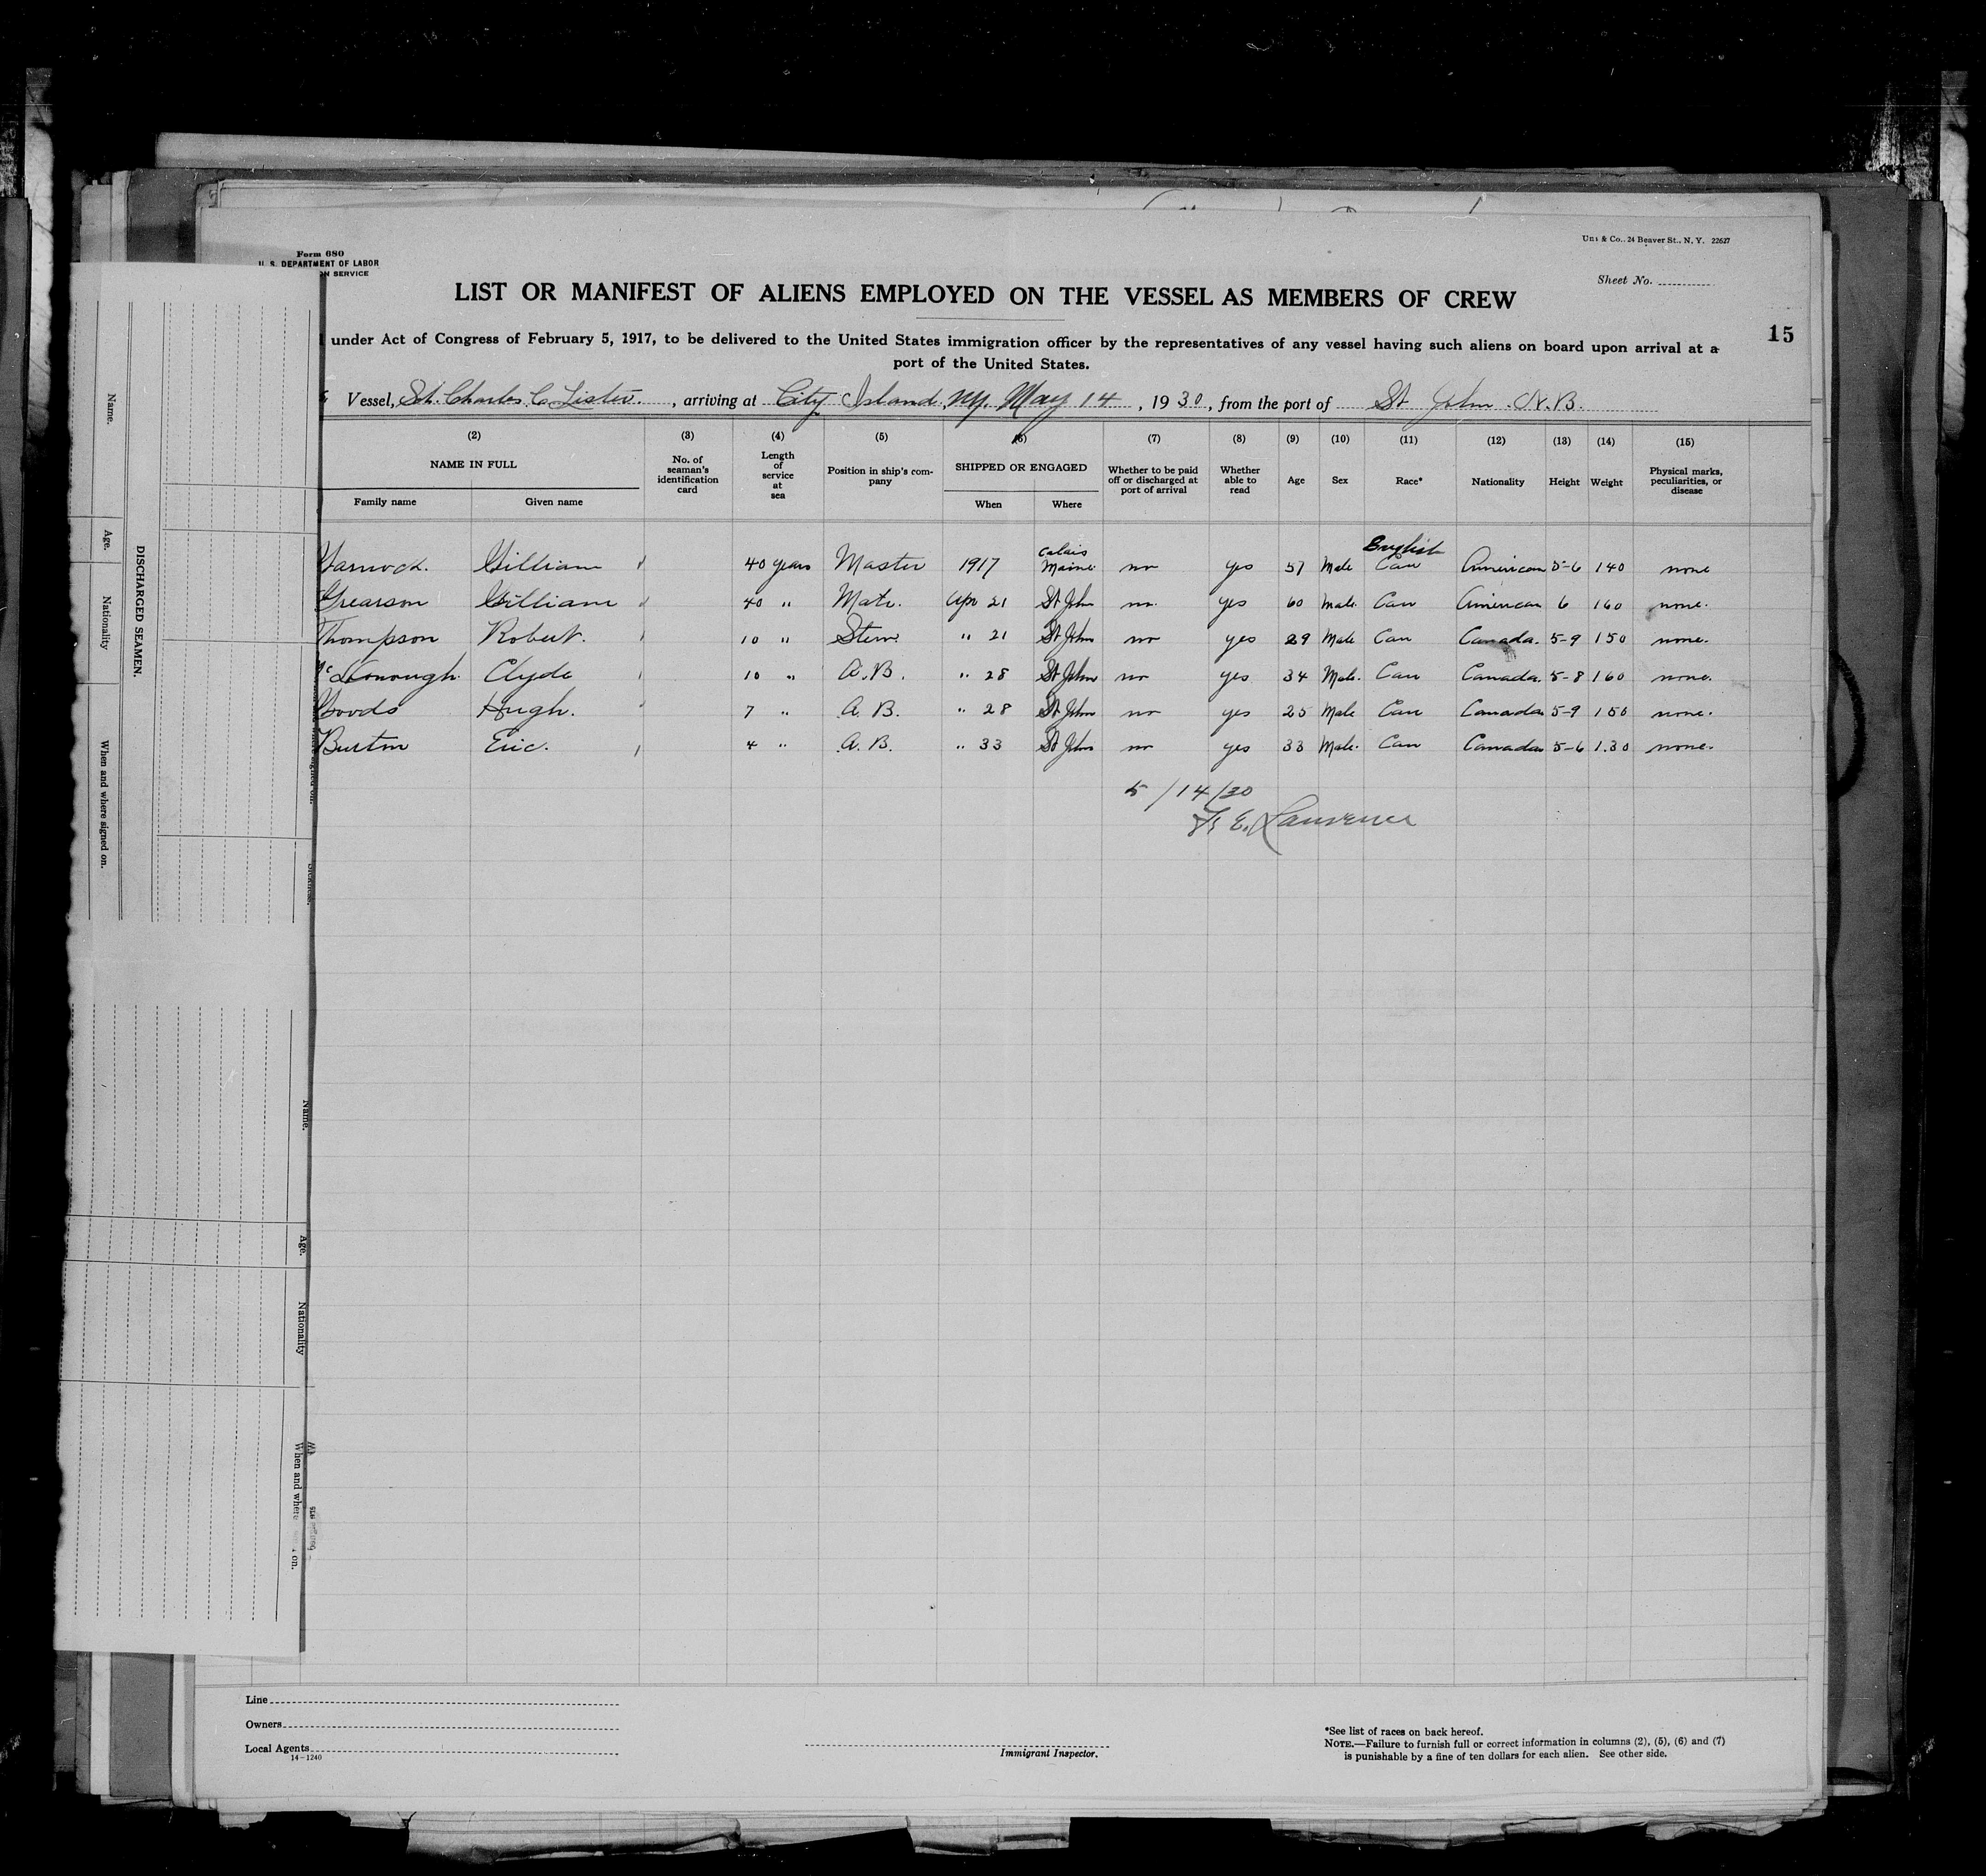 Form 680
U. S. DEPARTMENT OF LABOR
ON SERVICE
& Co., 24 Beaver St., N. Y. 22627
Sheet No.
LIST OR MANIFEST OF ALIENS EMPLOYED ON THE VESSEL AS MEMBERS OF CREW
15
under Act of Congress of February 5, 1917, to be delivered to the United States immigration officer by the representatives of any vessel having such aliens on board upon arrival at a
port of the United States.
Vessel, Sch. Charles C. Lister, arriving at City Island N.Y. May 14, 1930, from the port of St John N.B.
(2) (3) (4) (5) (6) (7) (8) (9) (10) (11) (12) (13) (14) (15)
NAME IN FULL No. of seaman's identification card Length of service at sea Position in ship's company SHIPPED OR ENGAGED Whether to be paid off or discharged at port of arrival Whether able to read Age Sex Race* Nationality Height Weight Physical marks, peculiarities, or disease
Family name Given name When Where
William 40 years Master 1917 Calais Maine no yes 57 Male English Can American 5-6 140 none
Grearson William 40 " Mate. Apr 21 St John no. yes 60 Male. Can American 6 160 none.
Thompson Robert. 10 " Stew. " 21 St John no yes 29 Male Can Canada. 5-9 150 none.
McDonough. Clyde 10 " A.B. " 28 St John no yes 34 Male. Can Canada. 5-8 160 none.
Woods Hugh. 7 " A. B. " 28 St John no yes 25 Male Can Canada 5-9 150 none.
Burton Eric. 4 " A. B. " 33 St John no yes 33 Male. Can Canada 5-6 1.30 none.
5/14/30
E. Lawrence
DISCHARGED SEAMEN.
Name. Age. Nationality When and where signed on.
Name. Age. Nationality When and where on.
Line
Owners
Local Agents
14-1240
Immigrant Inspector.
*See list of races on back hereof.
NOTE.—Failure to furnish full or correct information in columns (2), (5), (6) and (7)
is punishable by a fine of ten dollars for each alien. See other side.